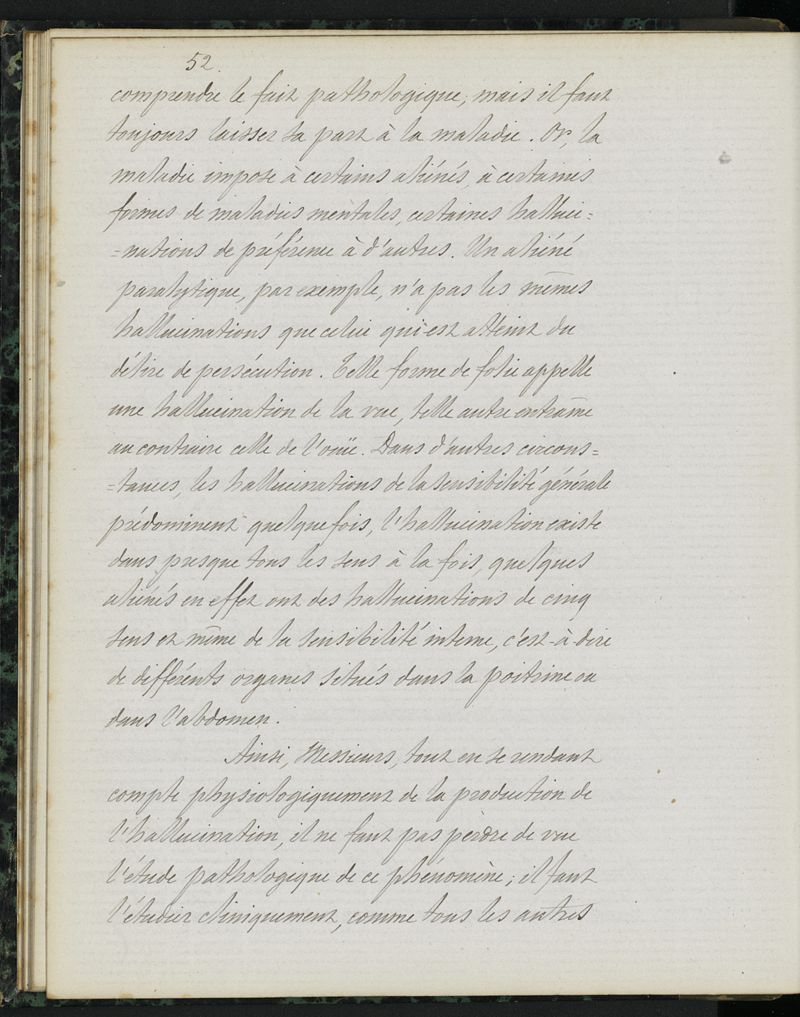 52
comprendre le fait pathologique, mais il faut
toujours laisser sa part à la maladie. Or, la
maladie impose à certains aliénés, à certaines
formes de maladies mentales, certaines halluci=
=nations de préférence à d'autres. Un aliéné
paralytique, par exemple, n'a pas les mêmes
hallucinations que celui qui est atteint du
délire de persécution. Telle forme de folie appelle
une hallucination de la vue, telle autre entraîne
au contraire celle de l'ouïe. Dans d'autres circons=
=tances, les hallucinations de la sensibilité générale
prédominent quelquefois, l'hallucination existe
dans presque tous les sens à la fois, quelques
aliénés en effet ont des hallucinations de cinq
sens et même de la sensibilité interne, c'est-à-dire
de différents organes situés dans la poitrine ou
dans l'abdomen.
Ainsi, Messieurs, tout en se rendant
compte physiologiquement de la production de
l'hallucination, il ne faut pas perdre de vue
l'étude pathologique de ce phénomène; il faut
l'étudier cliniquement, comme tous les autres